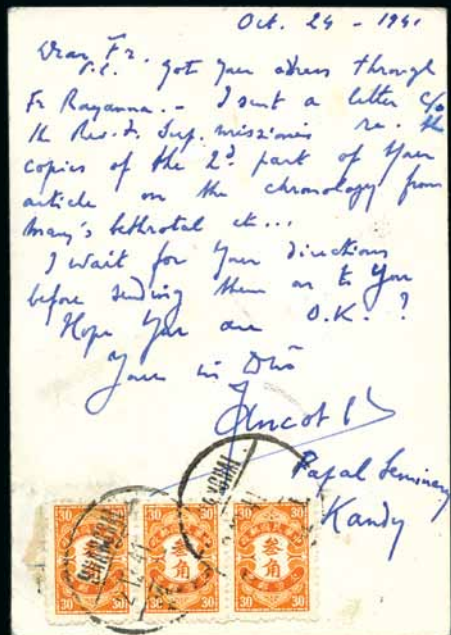 Oct. 24 - 1941
Dear Fr.
P.C. Got your adress through
Fr Rayanna. - I sent a letter c/o
the Rev. F. Sup. missionis re. the
copies of the 2d part of your
article on the chronology from
Mary's bethrotal etc...
I wait for your directions
before sending them on to you
Hope you are O.K. ?
Yours in Dno
Ancot
Papal Seminary
Kandy
SHANGHAI
SHANGHAI
30 30 30 30 30 30
叁角 叁角 叁角
30 30 30 30 30 30